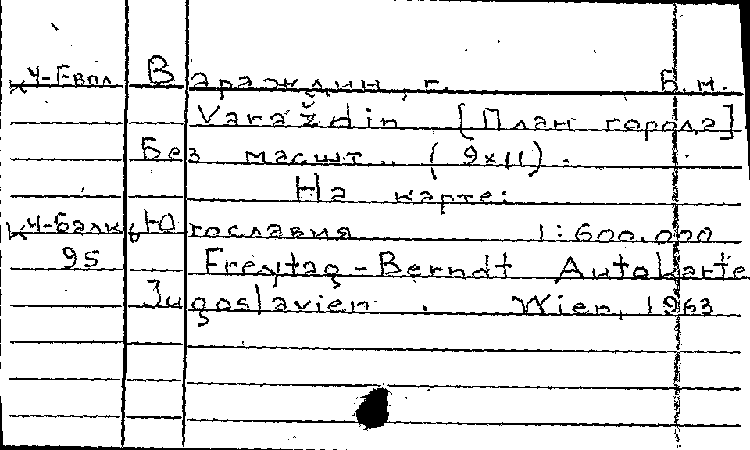 К4-Евпл Вараждин, г. Б.м.
Varaždin [План города]
Без масшт. (9×11).
На карте:
К4-Балк Югославия 1:600.000
95 Freytag-Berndt Autokarte
Jugoslavien. Wien, 1963